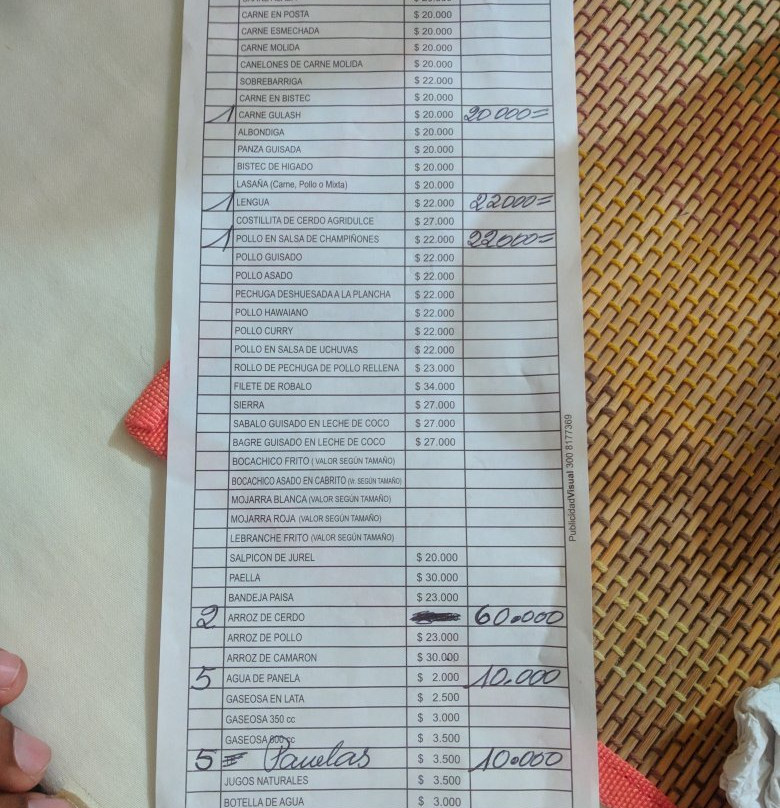 CARNE EN POSTA $ 20.000
CARNE ESMECHADA $ 20.000
CARNE MOLIDA $ 20.000
CANELONES DE CARNE MOLIDA $ 20.000
SOBREBARRIGA $ 22.000
CARNE EN BISTEC $ 20.000
1 CARNE GULASH $ 20.000 20000=
ALBONDIGA $ 20.000
PANZA GUISADA $ 20.000
BISTEC DE HIGADO $ 20.000
LASAÑA (Carne, Pollo o Mixta) $ 20.000
1 LENGUA $ 22.000 22000=
COSTILLITA DE CERDO AGRIDULCE $ 27.000
1 POLLO EN SALSA DE CHAMPIÑONES $ 22.000 22000=
POLLO GUISADO $ 22.000
POLLO ASADO $ 22.000
PECHUGA DESHUESADA A LA PLANCHA $ 22.000
POLLO HAWAIANO $ 22.000
POLLO CURRY $ 22.000
POLLO EN SALSA DE UCHUVAS $ 22.000
ROLLO DE PECHUGA DE POLLO RELLENA $ 23.000
FILETE DE ROBALO $ 34.000
SIERRA $ 27.000
SABALO GUISADO EN LECHE DE COCO $ 27.000
BAGRE GUISADO EN LECHE DE COCO $ 27.000
BOCACHICO FRITO ( VALOR SEGÚN TAMAÑO)
BOCACHICO ASADO EN CABRITO (Vr. SEGÚN TAMAÑO)
MOJARRA BLANCA (VALOR SEGÚN TAMAÑO)
MOJARRA ROJA (VALOR SEGÚN TAMAÑO)
LEBRANCHE FRITO (VALOR SEGÚN TAMAÑO)
SALPICON DE JUREL $ 20.000
PAELLA $ 30.000
BANDEJA PAISA $ 23.000
2 ARROZ DE CERDO 60.000
ARROZ DE POLLO $ 23.000
ARROZ DE CAMARON $ 30.000
5 AGUA DE PANELA $ 2.000 10.000
GASEOSA EN LATA $ 2.500
GASEOSA 350 cc $ 3.000
GASEOSA 600 cc $ 3.500
5 Panelas $ 3.500 10.000
JUGOS NATURALES $ 3.500
BOTELLA DE AGUA $ 3.000
PublicidadVisual 300 8177369